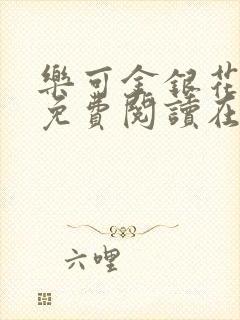 樂可金銀花
免費閱讀在
六哩